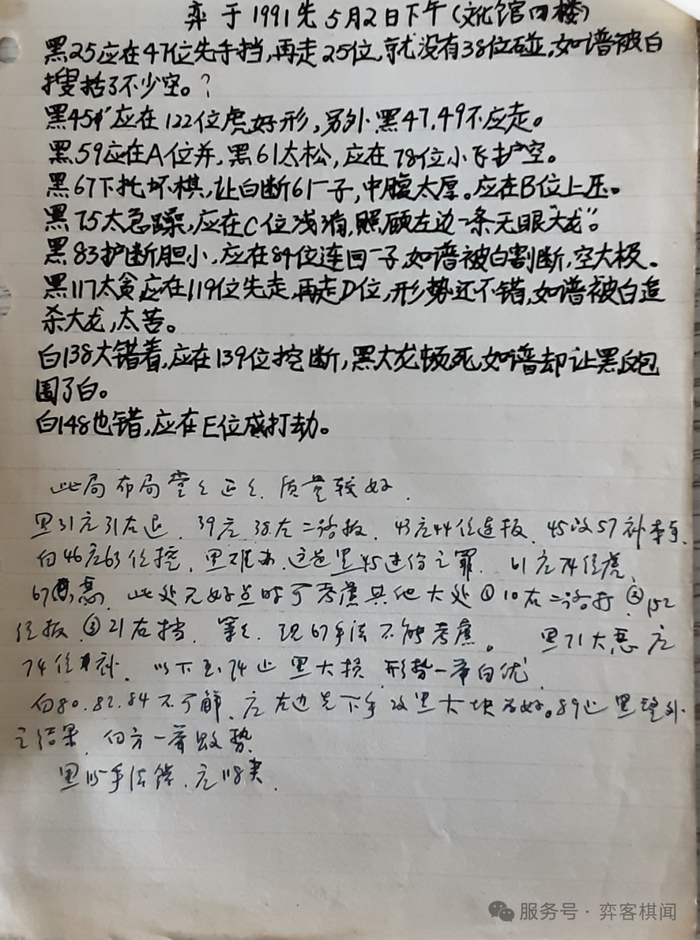 弈于1991年5月2日下午(文化馆四楼)
黑25应在47位先手挡,再走25位,就没有38位碰,如谱被白
搜括了不少空。?
黑45应在122位虎好形,另外黑47,49不应走。
黑59应在A位并,黑61太松,应在78位小飞扩空。
黑67下扳坏棋,让白断61一子,中腹太厚。应在B位上压。
黑75太急躁,应在C位浅消,照顾左边一条无眼"大龙"。
黑83护断胆小,应在84位连回一子,如谱被白割断,空大极。
黑117太贪,应在119位先走,再走D位,形势还不错,如谱被白追
杀大龙,太苦。
白138大错着,应在139位挖断,黑大龙顿死,如谱却让黑反包
围了白。
白148也错,应在E位成打劫。
此局布局堂堂正正,质量较好。
黑31应31右退,39应38左二路扳,43应44位连扳,45改57补幸,
白46应63位挖,黑难办,这是黑45违俗之罪。61应74位虎,
67恶,此处无好点时可考虑其他大处①10右二路打②152
位扳③21右挡,等等,现67手法不能考虑。黑71大恶应
74位补,以下至74止黑大损,形势一导白优
白80.82.84不可解,应左边先下手攻黑大块为好。89止黑整外
之结果,白方一导败势
黑115手法错,应118夹
服务号·弈客棋闻